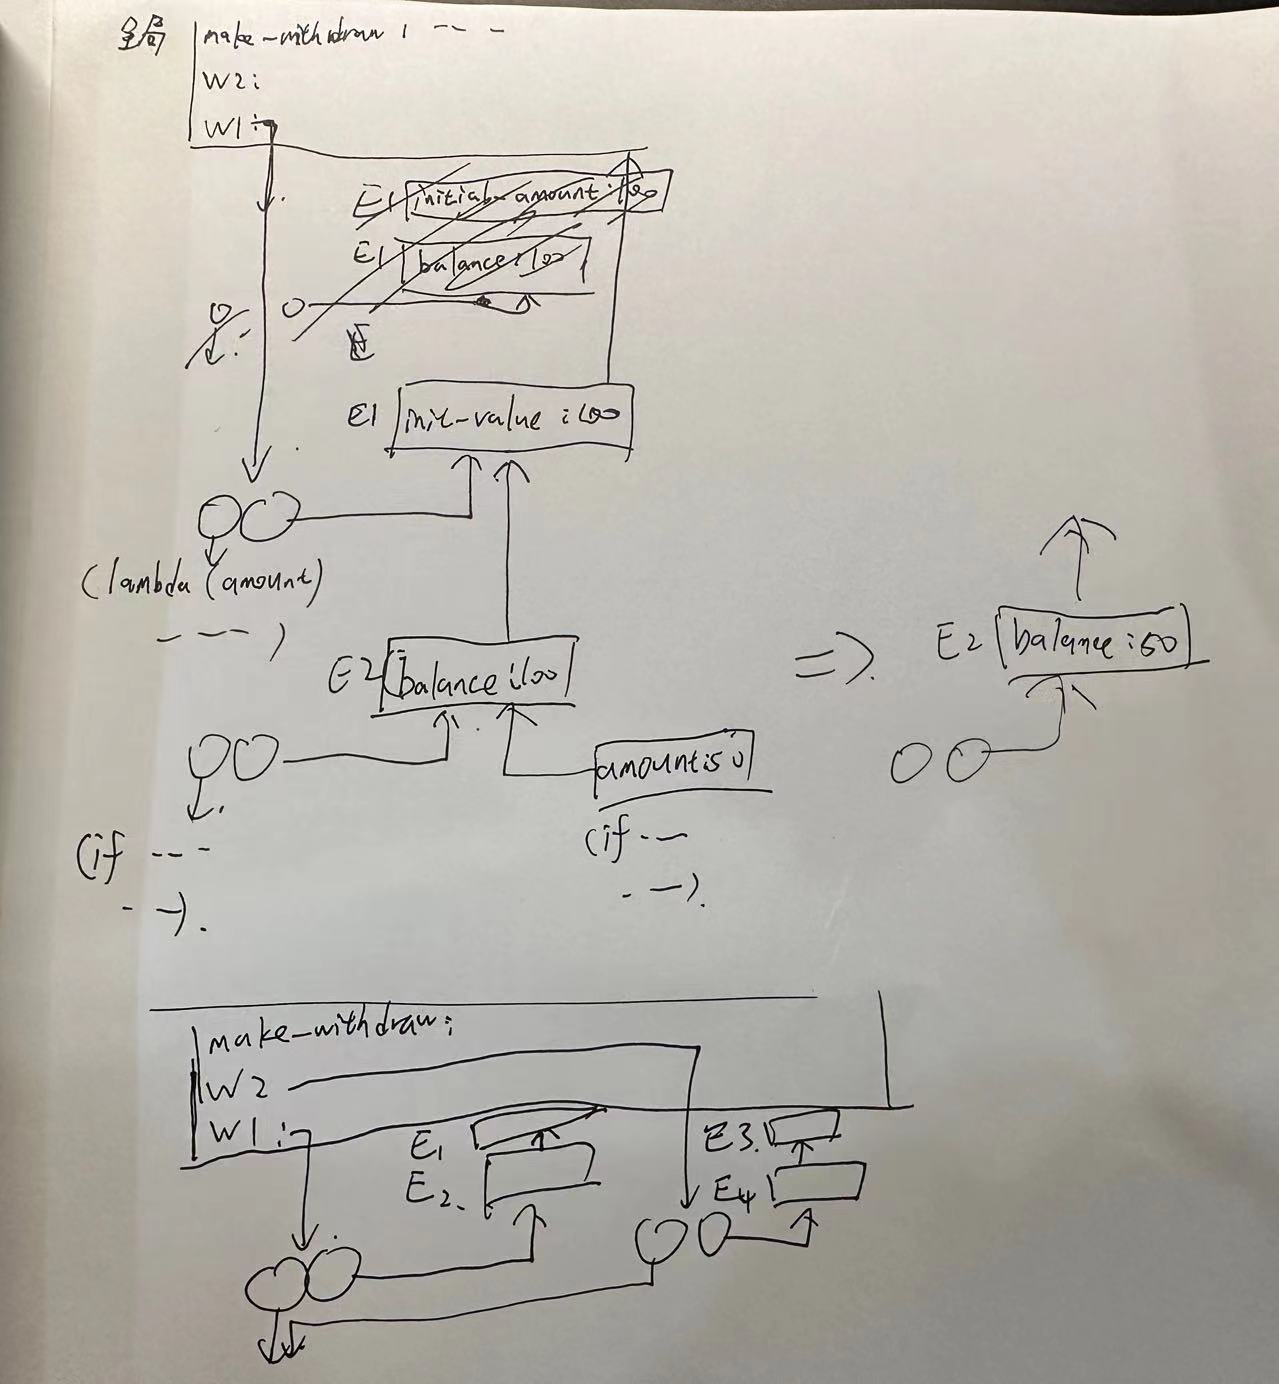 全局 make-withdraw : ---
W2:
W1:
E1 initial-amount:100
E1 balance:100
E1 init-value:100
(lambda (amount)
----)
E2 balance:100
=> E2 balance:50
amount:50
(if ---
--).
(if ---
--).
make-withdraw:
W2
W1:
E1
E2.
E3.
E4